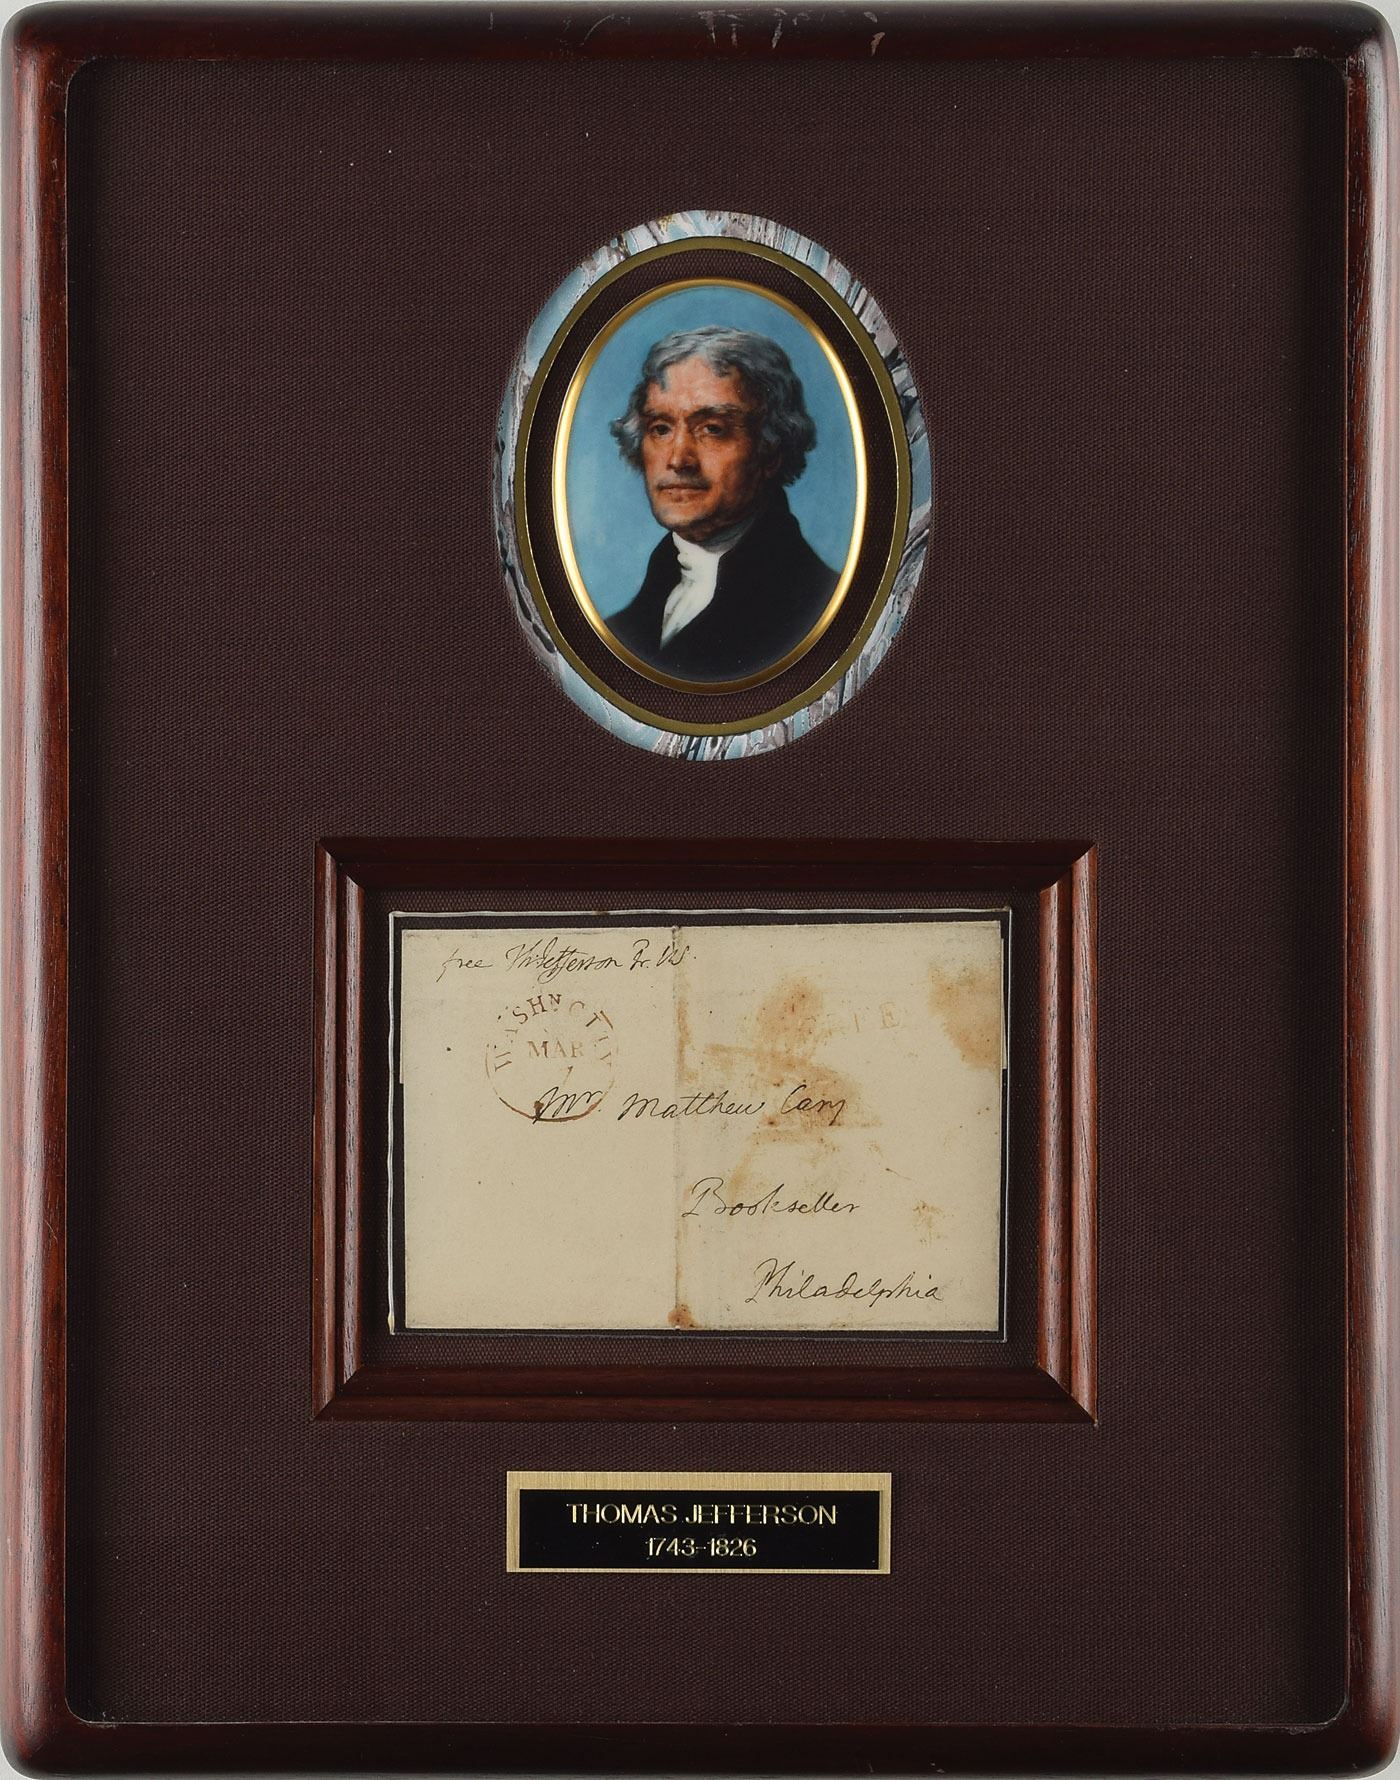 free Th: Jefferson Pr. US.
WASHN CITY
MAR
1
FREE
Mr. Matthew Cary
Bookseller
Philadelphia
THOMAS JEFFERSON
1743-1826